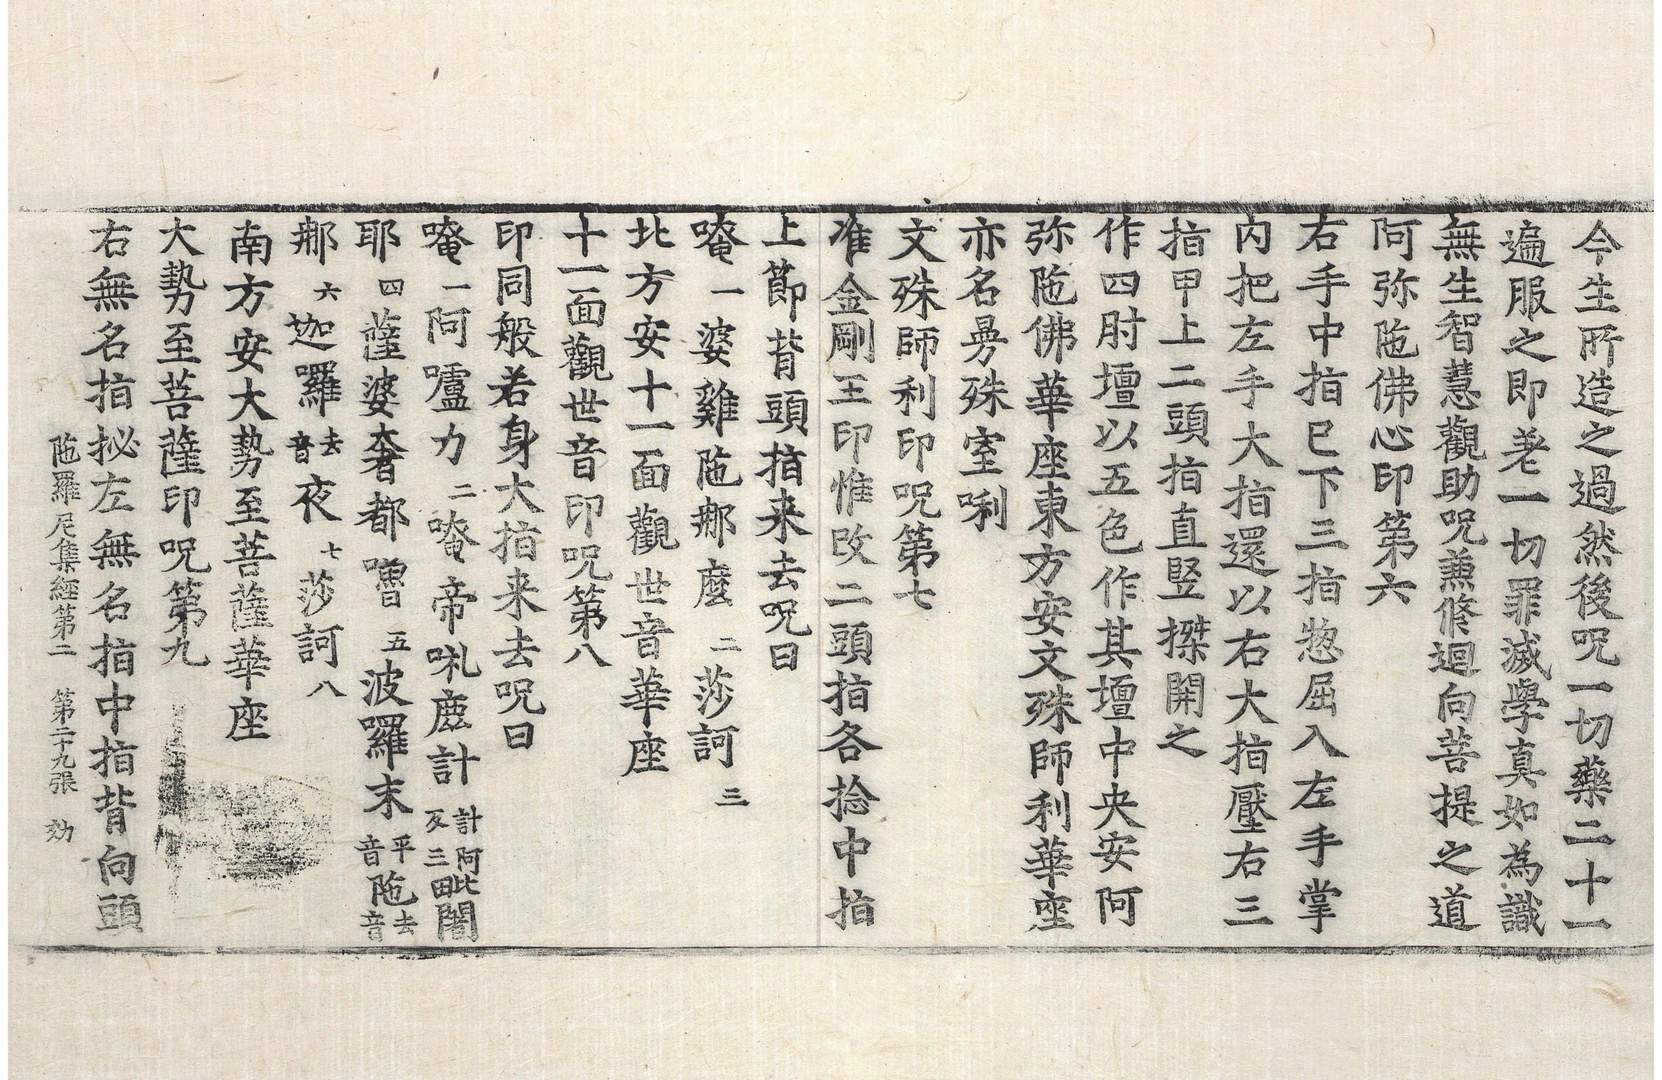 今生所造之過然後呪一切藥二十一
遍服之即差一切罪滅學真如為識
無生智慧觀助呪兼脩迴向菩提之道
阿弥陁佛心印第六
右手中指已下三指惣屈入左手掌
内把左手大指還以右大指壓右三
指甲上二頭指直竪搩開之
作四肘壇以五色作其壇中央安阿
弥陁佛華座東方安文殊師利華座
亦名曼殊室唎
文殊師利印呪第七
准金剛王印惟改二頭指各捻中指
上節背頭指来去呪曰
唵一婆雞陁那麼二莎訶三
北方安十一面觀世音華座
十一面觀世音印呪第八
印同般若身大指来去呪曰
唵一阿嚧力二唵帝㖿鹿計計阿毗反三田闍
耶四薩婆奢都嚕五波羅末平音陁去音
那六迦囉去音夜七莎訶八
南方安大勢至菩薩華座
大勢至菩薩印呪第九
右無名指拟左無名指中指背向頭
陁羅尼集經第二 第二十九張 効